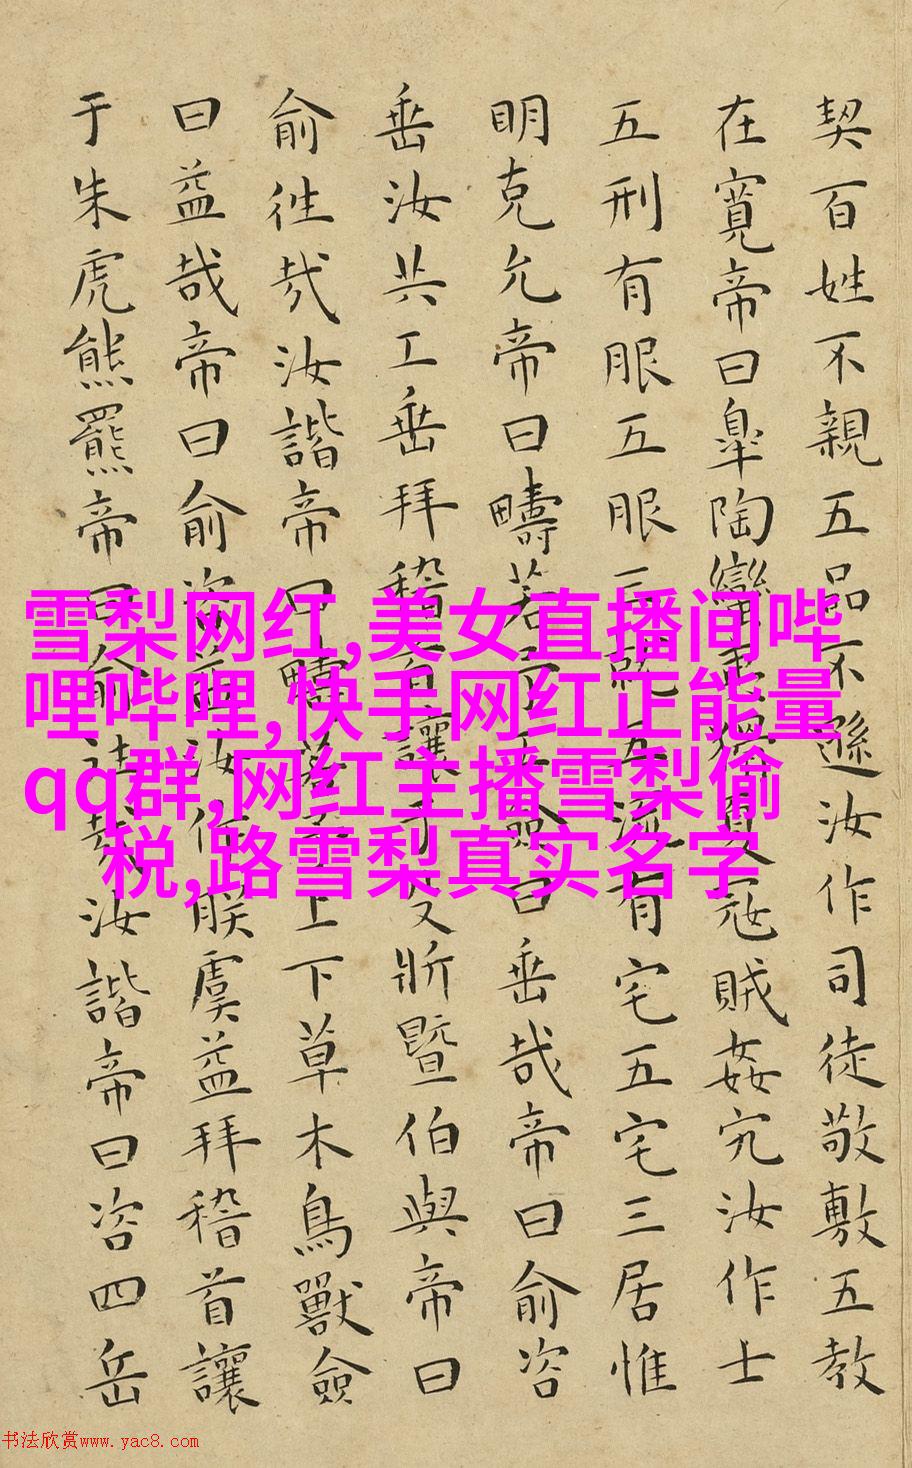 契百姓不親五品不遜汝作司徒敬敷五教
在寬帝曰皐陶蠻夷猾夏冦賊姦宄汝作士
五刑有服五服三就五流有宅五宅三居惟
明克允帝曰疇若予工僉曰垂哉帝曰俞咨
垂汝共工垂拜稽首讓于殳斨暨伯與帝曰
俞徃哉汝諧帝曰疇若予上下草木鳥獸僉
曰益哉帝曰俞咨益汝作朕虞益拜稽首讓
于朱虎熊羆帝曰俞往哉汝諧帝曰咨四岳
雪梨网红,美女直播间哔
哩哔哩,快手网红正能量
qq群,网红主播雪梨偷
税,路雪梨真实名字
书法欣赏www.yac8.com